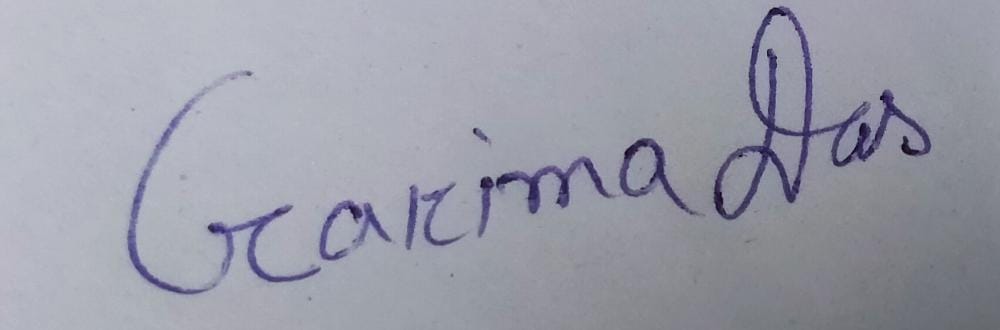 Garima Das